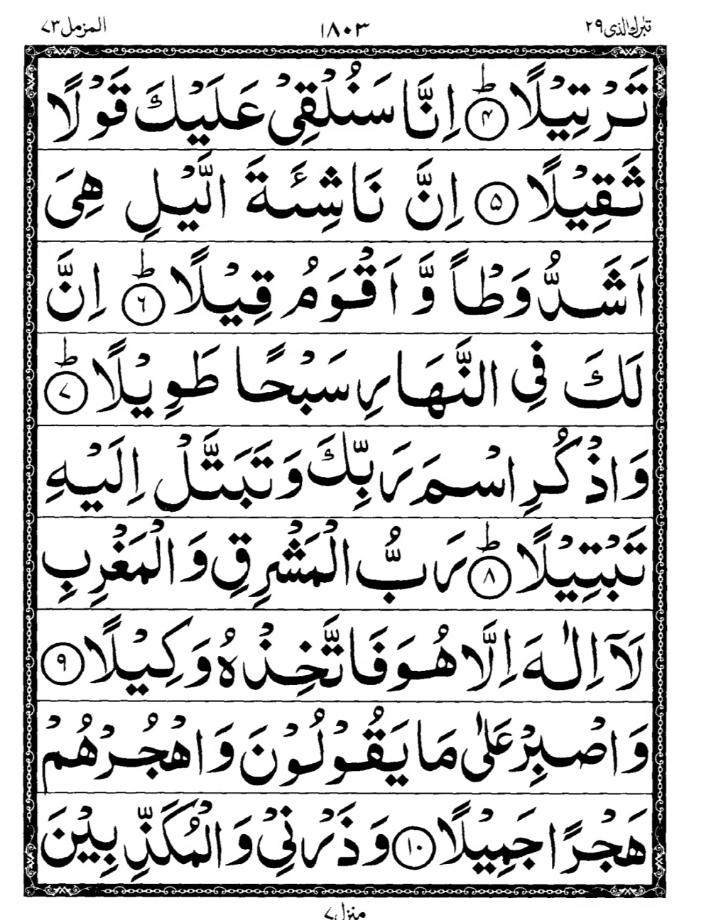 تبٰرك الذی ۲۹ ۱۸۰۳ المزمل ۷۳
تَرْتِيْلًا ؕ﴿۴﴾ اِنَّا سَنُلْقِیْ عَلَيْكَ قَوْلًا
ثَقِيْلًا ﴿۵﴾ اِنَّ نَاشِئَةَ الَّيْلِ هِیَ
اَشَدُّ وَطْاً وَّ اَقْوَمُ قِيْلًا ؕ﴿۶﴾ اِنَّ
لَكَ فِی النَّهَارِ سَبْحًا طَوِيْلًا ؕ﴿۷﴾
وَاذْكُرِ اسْمَ رَبِّكَ وَتَبَتَّلْ اِلَيْهِ
تَبْتِيْلًا ؕ﴿۸﴾ رَبُّ الْمَشْرِقِ وَالْمَغْرِبِ
لَآ اِلٰهَ اِلَّا هُوَ فَاتَّخِذْهُ وَكِيْلًا ﴿۹﴾
وَاصْبِرْ عَلٰی مَا يَقُوْلُوْنَ وَاهْجُرْهُمْ
هَجْرًا جَمِيْلًا ﴿۱۰﴾ وَذَرْنِیْ وَالْمُكَذِّبِيْنَ
منزل ۷